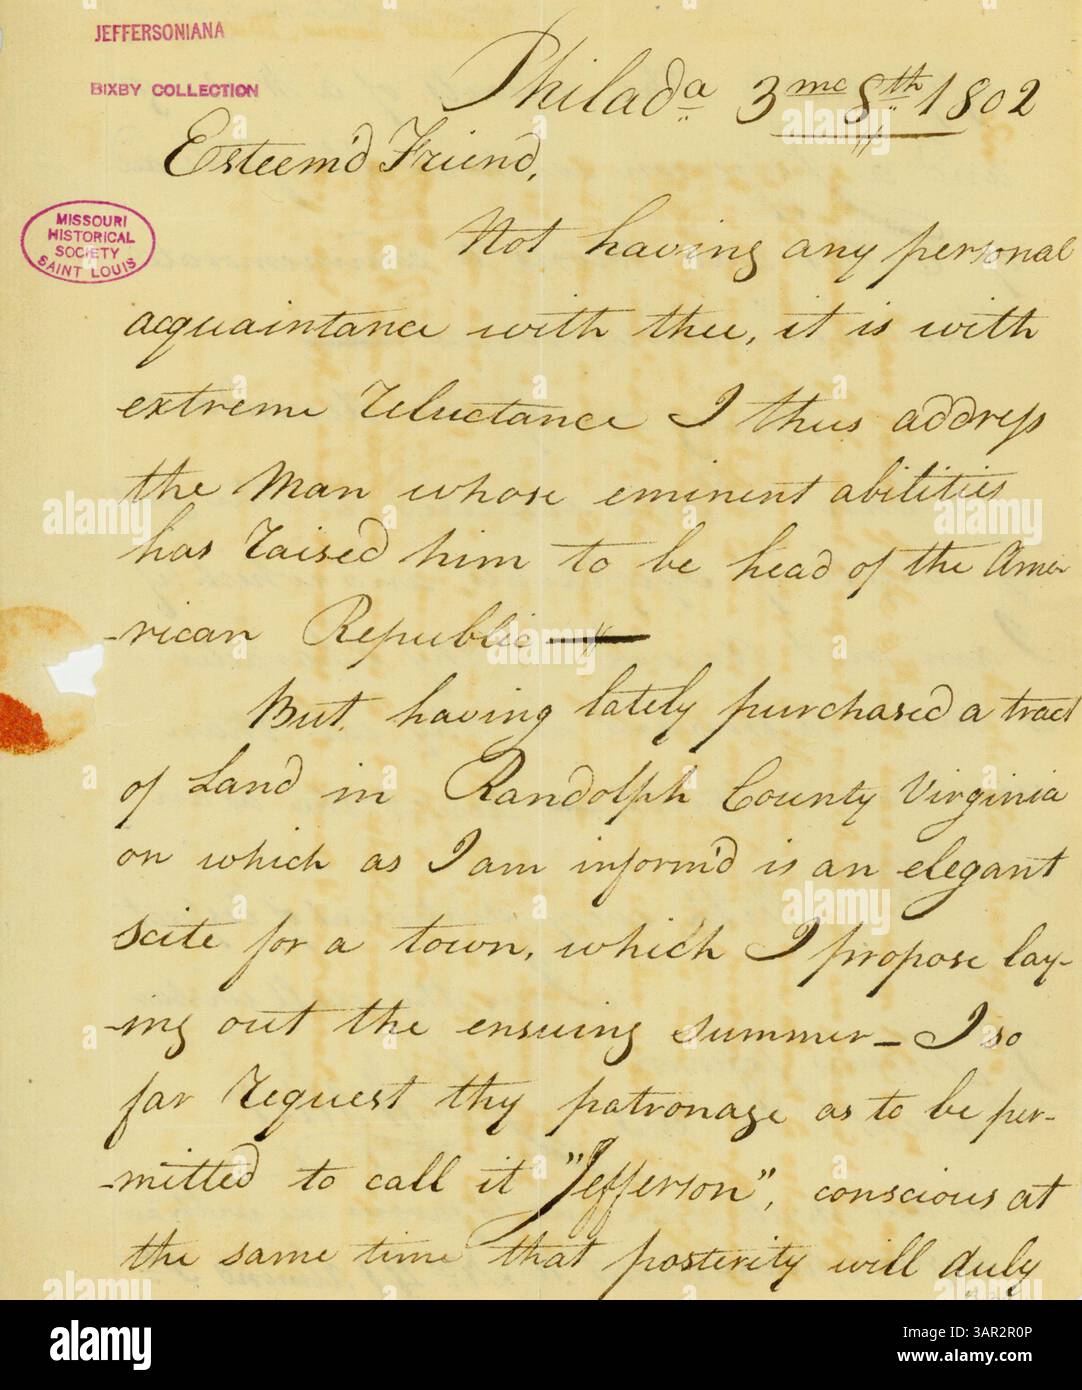 JEFFERSONIANA
BIXBY COLLECTION
Philada 3mo 8th 1802
Esteem'd Friend,
MISSOURI
HISTORICAL
SOCIETY
SAINT LOUIS
Not having any personal
acquaintance with thee, it is with
extreme reluctance I thus address
the Man whose eminent abilities
has raised him to be head of the Ame-
-rican Republic
But, having lately purchased a tract
of Land in Randolph County Virginia
on which as I am inform'd is an elegant
scite for a town, which I propose lay-
-ing out the ensuing summer - I so
far request thy patronage as to be per-
-mitted to call it "Jefferson", conscious at
the same time that posterity will duly
alamy
Image ID: 3AR2R0P
www.alamy.com